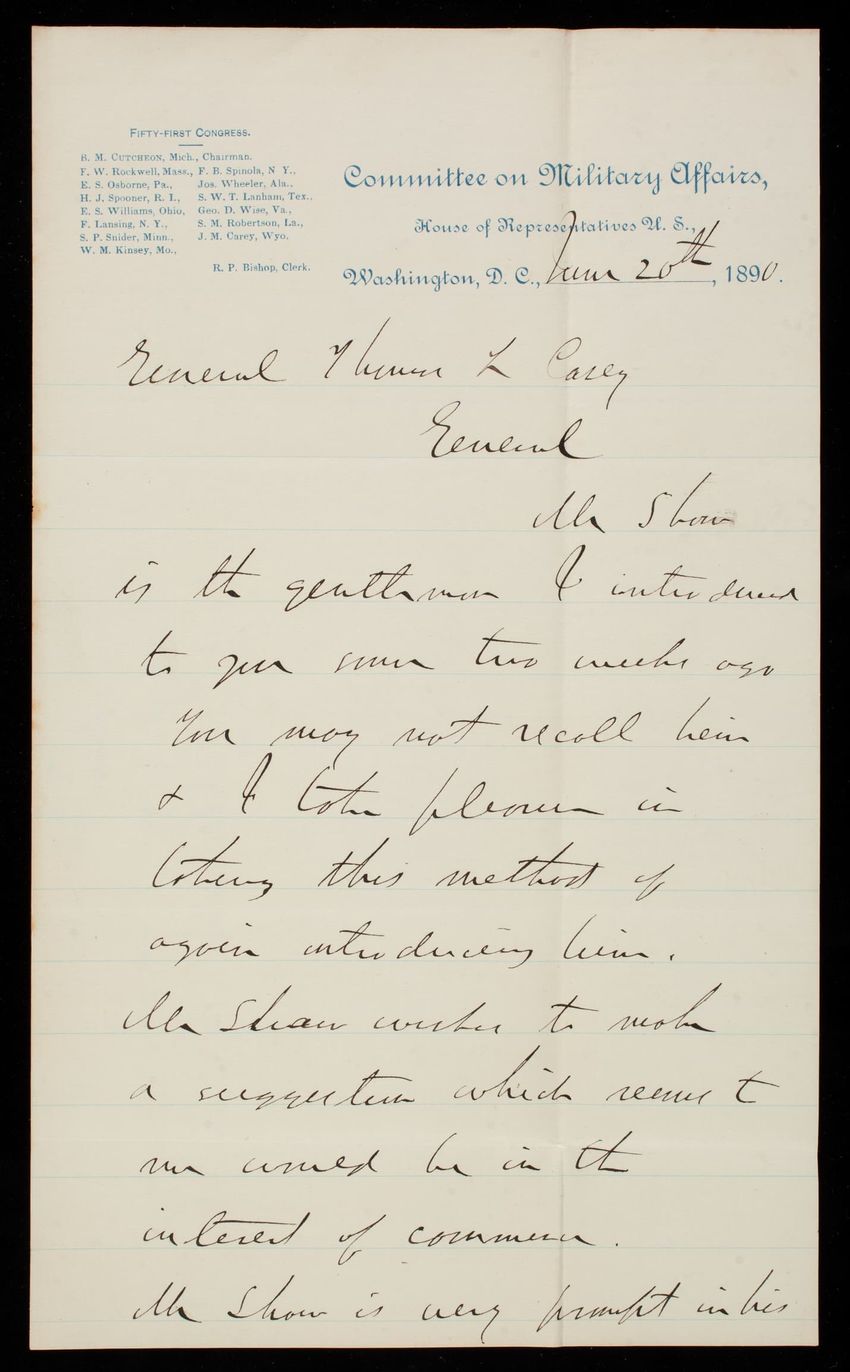 FIFTY-FIRST CONGRESS.
B. M. CUTCHEON, Mich., Chairman.
F. W. Rockwell, Mass., F. B. Spinola, N Y.,
E. S. Osborne, Pa., Jos. Wheeler, Ala.,
H. J. Spooner, R. I., S. W. T. Lanham, Tex.,
E. S. Williams, Ohio, Geo. D. Wise, Va.,
F. Lansing, N. Y., S. M. Robertson, La.,
S. P. Snider, Minn., J. M. Carey, Wyo.
W. M. Kinsey, Mo.,
R. P. Bishop, Clerk.
Committee on Military Affairs,
House of Representatives U. S.,
Washington, D. C., June 20th, 1890.
General Thomas L Casey
General
Mr Shaw
is the gentleman I introduced
to you some two weeks ago
You may not recall him
& I take pleasure in
taking this method of
again introducing him.
Mr Shaw wishes to make
a suggestion which seems to
me would be in the
interest of commerce.
Mr Shaw is very prompt in his